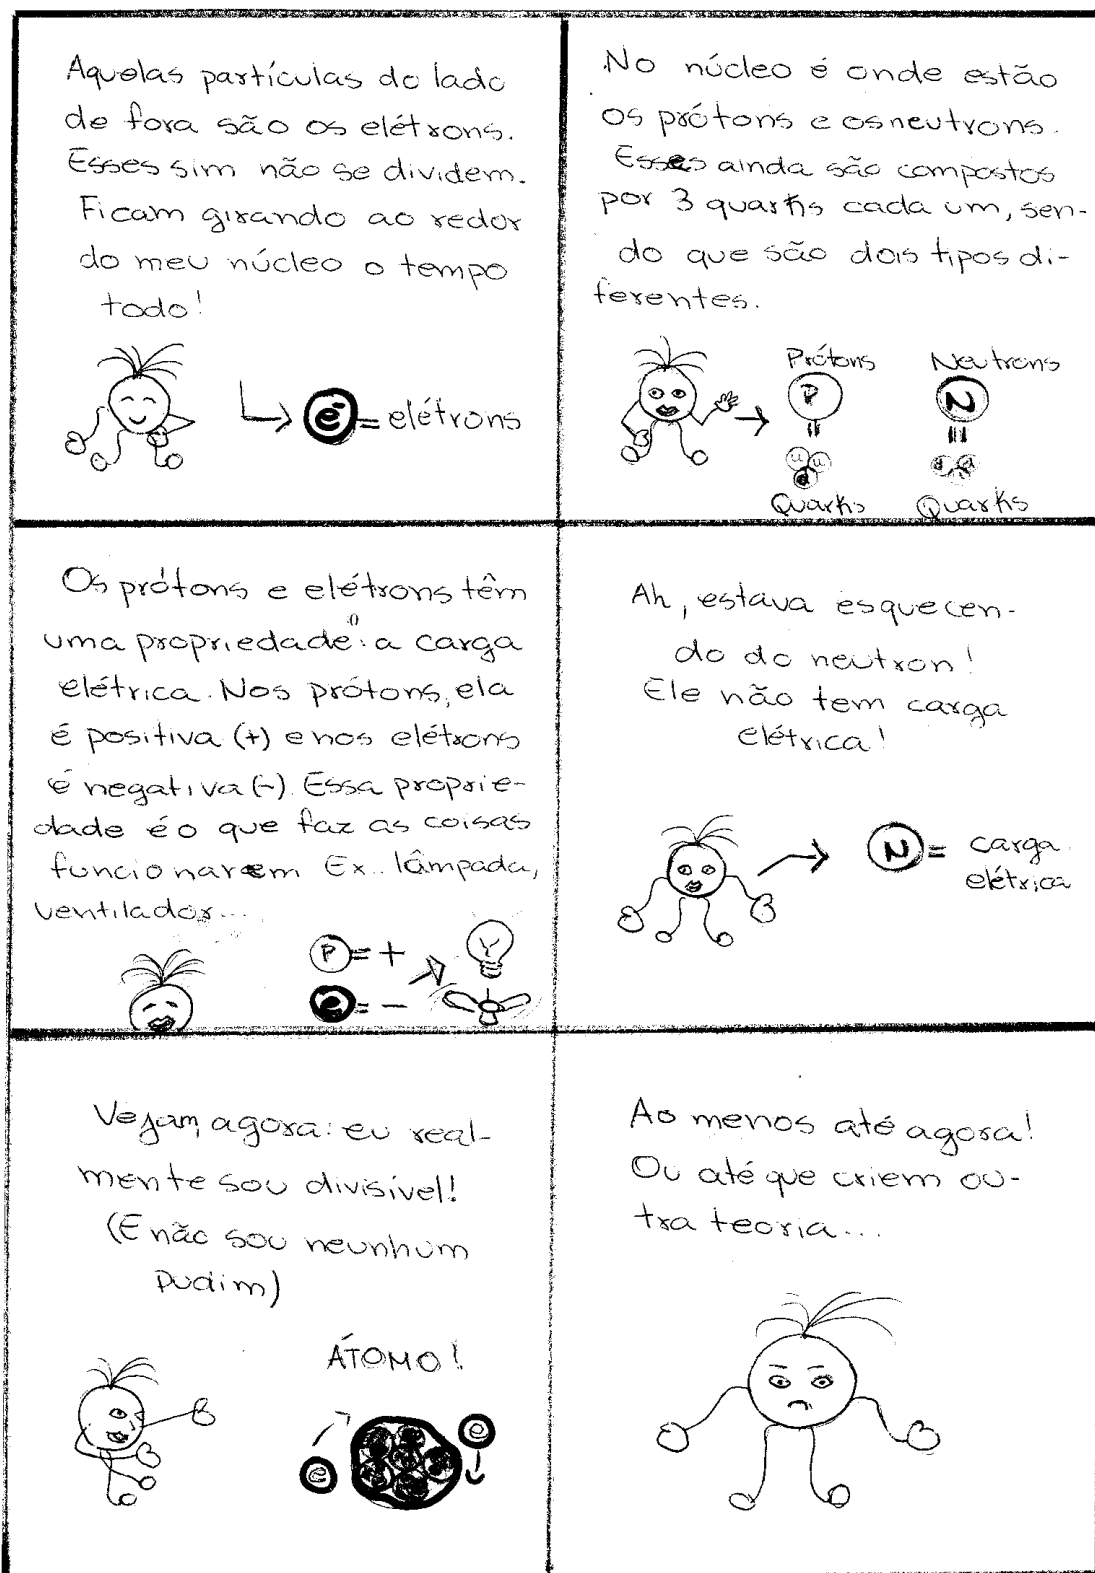 Aquelas partículas do lado
de fora são os elétrons.
Esses sim não se dividem.
Ficam girando ao redor
do meu núcleo o tempo
todo!
ē = elétrons
No núcleo é onde estão
os prótons e os neutrons.
Esses ainda são compostos
por 3 quarks cada um, sen-
do que são dois tipos di-
ferentes.
Prótons
Neutrons
P
N
=
=
u u
d
Quarks
Quarks
Os prótons e elétrons têm
uma propriedade: a carga
elétrica. Nos prótons, ela
é positiva (+) e nos elétrons
é negativa (-). Essa proprie-
dade é o que faz as coisas
funcionarem Ex.. lâmpada,
ventilador...
P = +
e = -
Ah, estava esquecen-
do do neutron!
Ele não tem carga
elétrica!
N = carga
elétrica
Vejam, agora: eu real-
mente sou divisível!
(E não sou neunhum
pudim)
ÁTOMO!
e
e
Ao menos até agora!
Ou até que criem ou-
tra teoria...